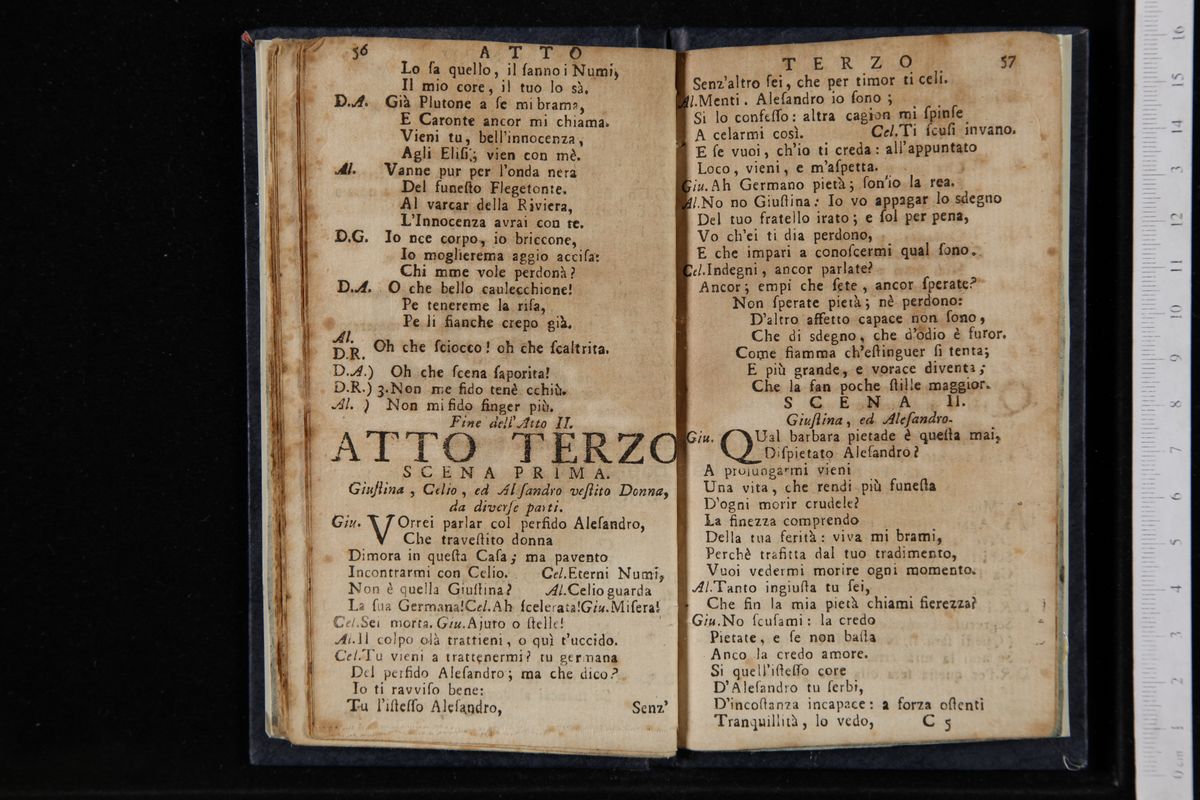 56 ATTO
Lo ſa quello, il ſanno i Numi,
Il mio core, il tuo lo sà.
D.A. Già Plutone a ſe mi brama,
E Caronte ancor mi chiama.
Vieni tu, bell'innocenza,
Agli Eliſi; vien con mè.
Al. Vanne pur per l'onda nera
Del funeſto Flegetonte.
Al varcar della Riviera,
L'Innocenza avrai con te.
D.G. Io nce corpo, io briccone,
Io moglierema aggio acciſa:
Chi mme vole perdonà?
D.A. O che bello caulecchione!
Pe tenereme la riſa,
Pe li fianche crepo già.
Al.
D.R. Oh che ſciocco! oh che ſcaltrita.
D.A.) Oh che ſcena ſaporita!
D.R.) 3. Non me fido tenè cchiù.
Al. ) Non mi fido finger più.
Fine dell'Atto II.
ATTO TERZO
SCENA PRIMA.
Giuſtina, Celio, ed Al ſandro veſtito Donna,
da diverſe parti.
Giu. VOrrei parlar col perfido Aleſandro,
Che traveſtito donna
Dimora in queſta Caſa; ma pavento
Incontrarmi con Celio. Cel.Eterni Numi,
Non è quella Giuſtina? Al.Celio guarda
La ſua Germana!Cel.Ah ſcelerata!Giu.Miſera!
Cel.Sei morta. Giu.Ajuto o ſtelle!
Al.Il colpo olà trattieni, o quì t'uccido.
Cel.Tu vieni a trattenermi? tu germana
Del perfido Aleſandro; ma che dico?
Io ti ravviſo bene:
Tu l'iſteſſo Aleſandro, Senz'
TERZO 57
Senz'altro ſei, che per timor ti celi.
Al.Menti. Aleſandro io ſono;
Si lo confeſſo: altra cagion mi ſpinſe
A celarmi così. Cel.Ti ſcuſi invano.
E ſe vuoi, ch'io ti creda: all'appuntato
Loco, vieni, e m'aſpetta.
Giu.Ah Germano pietà; ſon'io la rea.
Al.No no Giuſtina: Io vo appagar lo sdegno
Del tuo fratello irato; e ſol per pena,
Vo ch'ei ti dia perdono,
E che impari a conoſcermi qual ſono.
Cel.Indegni, ancor parlate?
Ancor; empi che ſete, ancor ſperate?
Non ſperate pietà; nè perdono:
D'altro affetto capace non ſono,
Che di sdegno, che d'odio è furor.
Come fiamma ch'eſtinguer ſi tenta;
E più grande, e vorace diventa;
Che la fan poche ſtille maggior.
SCENA II.
Giuſtina, ed Aleſandro.
Giu. QUal barbara pietade è queſta mai,
Diſpietato Aleſandro?
A prolungarmi vieni
Una vita, che rendi più funeſta
D'ogni morir crudele?
La finezza comprendo
Della tua ferità: viva mi brami,
Perchè trafitta dal tuo tradimento,
Vuoi vedermi morire ogni momento.
Al.Tanto ingiuſta tu ſei,
Che fin la mia pietà chiami fierezza?
Giu.No ſcuſami: la credo
Pietate, e ſe non baſta
Anco la credo amore.
Si quell'iſteſſo core
D'Aleſandro tu ſerbi,
D'incoſtanza incapace: a forza oſtenti
Tranquillità, lo vedo, C 5
16
15
14
13
12
11
10
9
8
7
6
5
4
3
2
1
0 cm